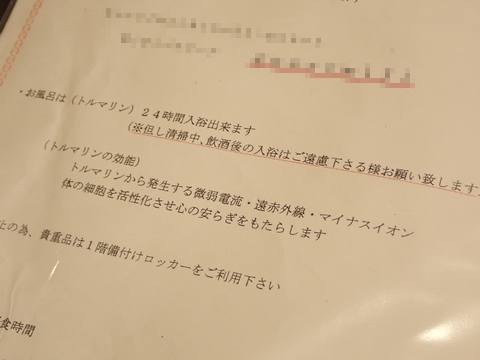 ・お風呂は（トルマリン）２４時間入浴出来ます
（※但し清掃中、飲酒後の入浴はご遠慮下さる様お願い致します
（トルマリンの効能）
トルマリンから発生する微弱電流・遠赤外線・マイナスイオン
体の細胞を活性化させ心の安らぎをもたらします
の為、貴重品は１階備付けロッカーをご利用下さい
食時間